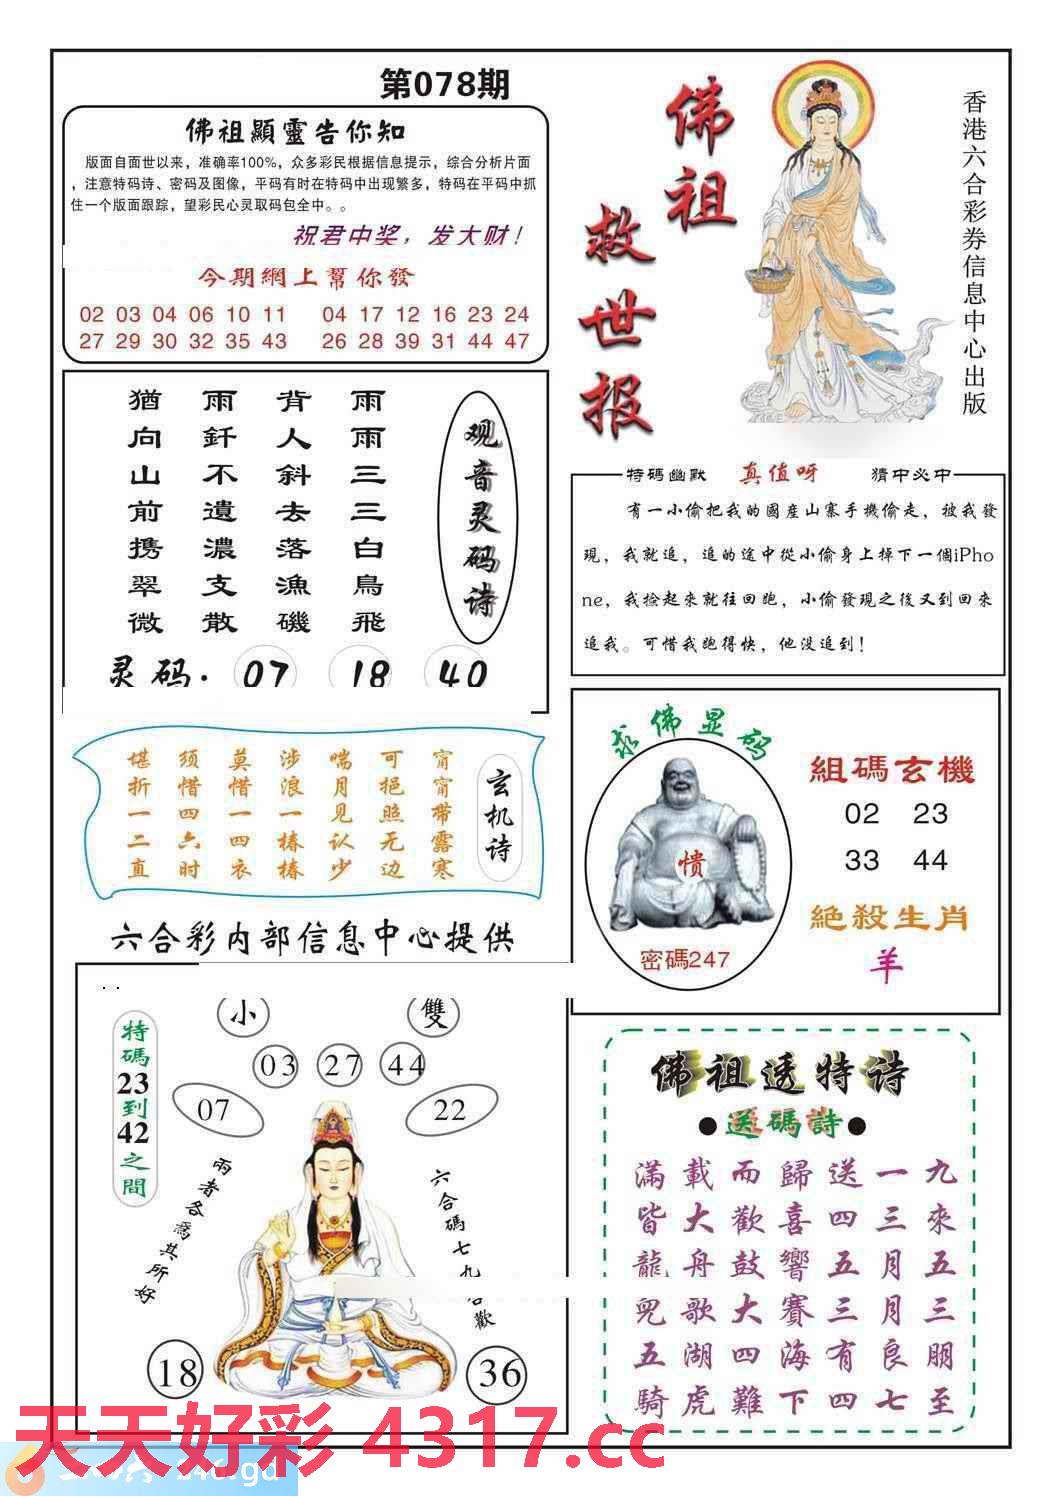 第078期
佛祖顯靈告你知
版面自面世以来，准确率100%，众多彩民根据信息提示，综合分析片面
，注意特码诗、密码及图像，平码有时在特码中出现繁多，特码在平码中抓
住一个版面跟踪，望彩民心灵取码包全中。。
祝君中奖，发大财！
今期網上幫你發
02 03 04 06 10 11 04 17 12 16 23 24
27 29 30 32 35 43 26 28 39 31 44 47
佛祖
救世报
香港六合彩券信息中心出版
观音灵码诗
雨雨三三白鳥飛
背人斜去落漁磯
雨釬不遺濃支散
猶向山前携翠微
灵码. 07 18 40
特碼幽默 真值呀 猜中必中
有一小偷把我的國産山寨手機偷走，被我發
現，我就追，追的途中從小偷身上掉下一個iPho
ne，我捡起來就往回跑，小偷發現之後又到回來
追我。可惜我跑得快，他没追到！
玄机诗
甯甯帶露寒
可挹照无边
喘月见认少
涉浪一椿椿
莫惜一四衣
须惜四六时
堪折一二直
求佛显码
愦
密碼247
組碼玄機
02 23
33 44
絕殺生肖
羊
六合彩内部信息中心提供
..
特碼23到42之間
小 雙
03 27 44
07 22
兩者各爲其所好
六合碼七九
歡
18 36
佛祖透特诗
●送碼詩●
滿載而歸送一九
皆大歡喜四三來
龍舟鼓響五月五
兜歌大賽三月三
五湖四海有良朋
騎虎難下四七至
天天好彩 4317.cc
246.gd